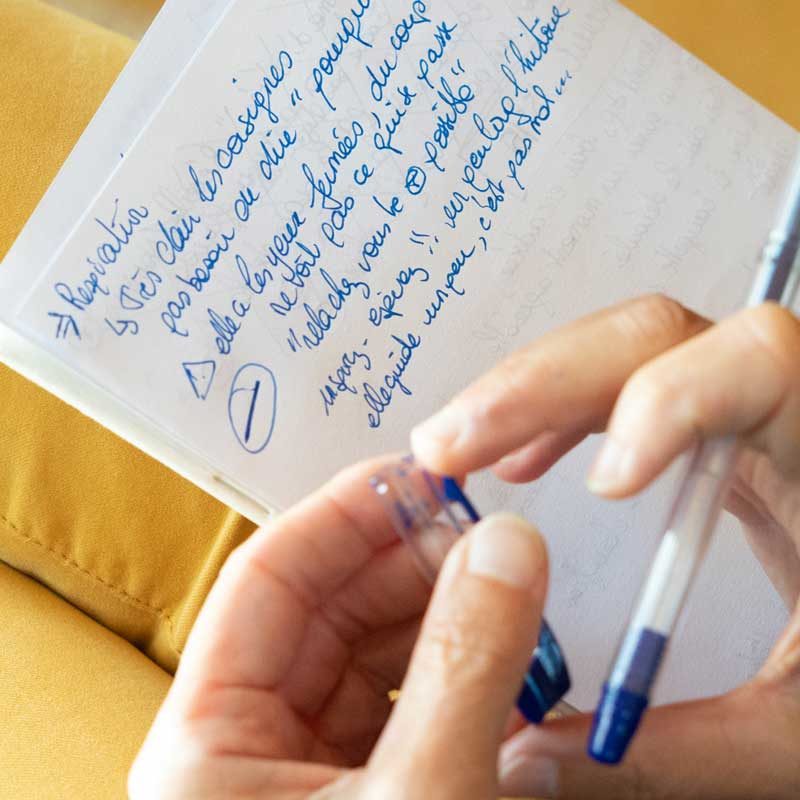 ⇒ Respiration
↳ Très clair les consignes
pas besoin de dire "pourquoi
⚠ elle a les yeux fermées du coup
ne voit pas ce qui se passe
"relachez vous le ⊕ possible"
⊖ inspirez - expirez !! un peu long l'histoire
elle guide un peu, c'est pas mal...